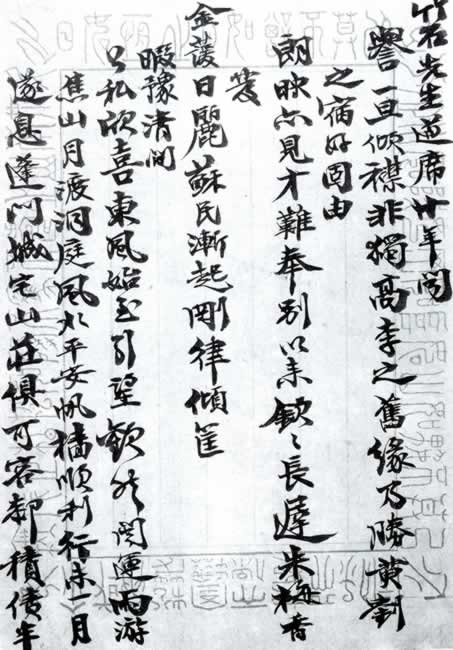 竹石先生道席廿年聞
譽一旦傾襟非獨高李之舊緣乃勝黃劉
之宿好固由
朗映亦見才難奉別以來欽欽長遲朱梅香
發
金護日麗蘇民漸起剛律傾筐
暇豫清閒
只私欣喜東風始至引望歡然開運兩游
焦山月渡洞庭風水平安帆橋順利行未一月
遂息蓬門城宅山莊俱可容卻積債半